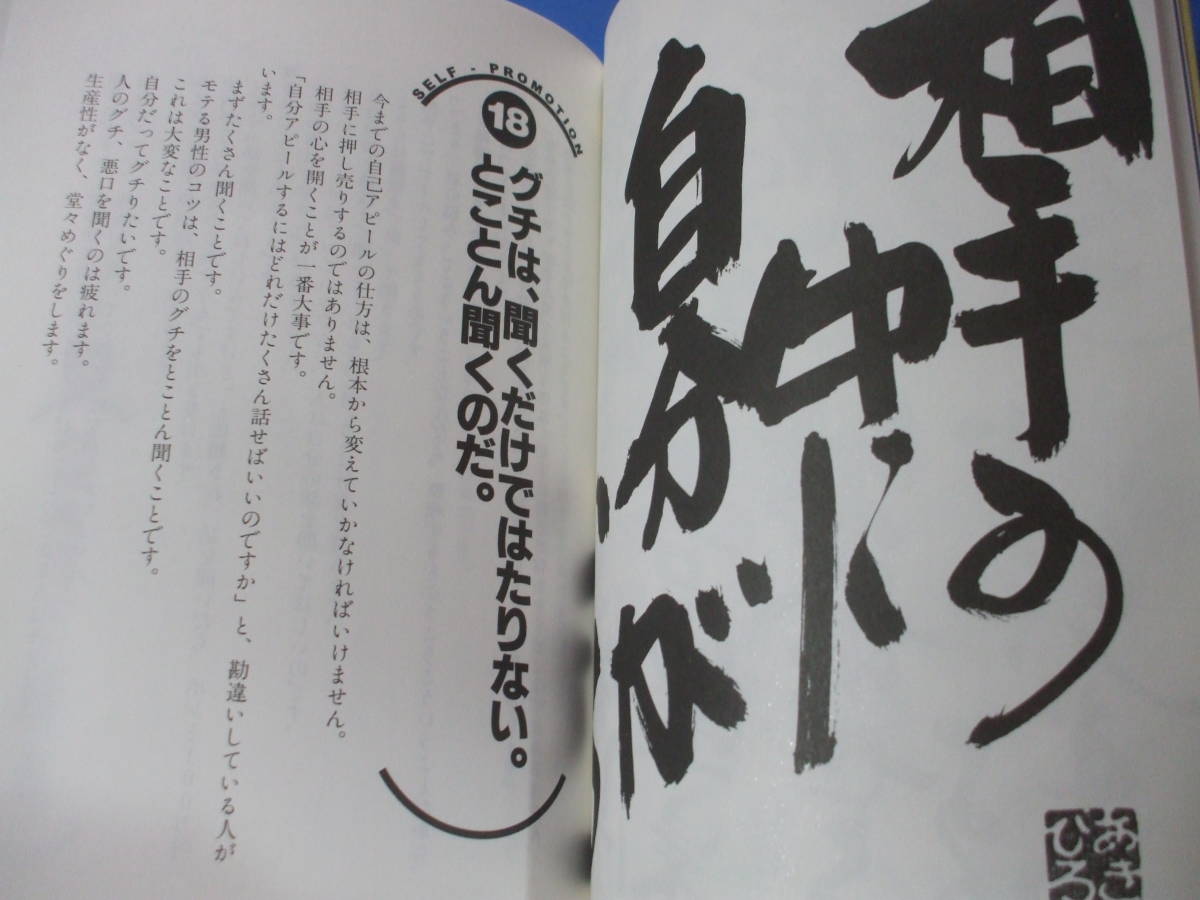 相手の
中に
自分が
あき
ひろ
SELF - PROMOTION
18
グチは、聞くだけではたりない。
とことん聞くのだ。
今までの自己アピールの仕方は、根本から変えていかなければいけません。
相手に押し売りするのではありません。
相手の心を開くことが一番大事です。
「自分アピールするにはどれだけたくさん話せばいいのですか」と、勘違いしている人が
います。
まずたくさん聞くことです。
モテる男性のコツは、相手のグチをとことん聞くことです。
これは大変なことです。
自分だってグチりたいです。
人のグチ、悪口を聞くのは疲れます。
生産性がなく、堂々めぐりをします。